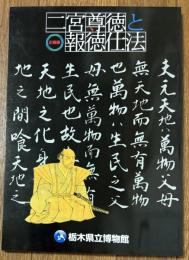 二宮尊徳と
企画展
報徳仕法
夫元天地万物父母
無天地而無有萬物
也萬物生民之父
母無萬物而無有
生民也故
天地之化
地之間喰天地之
栃木県立博物館